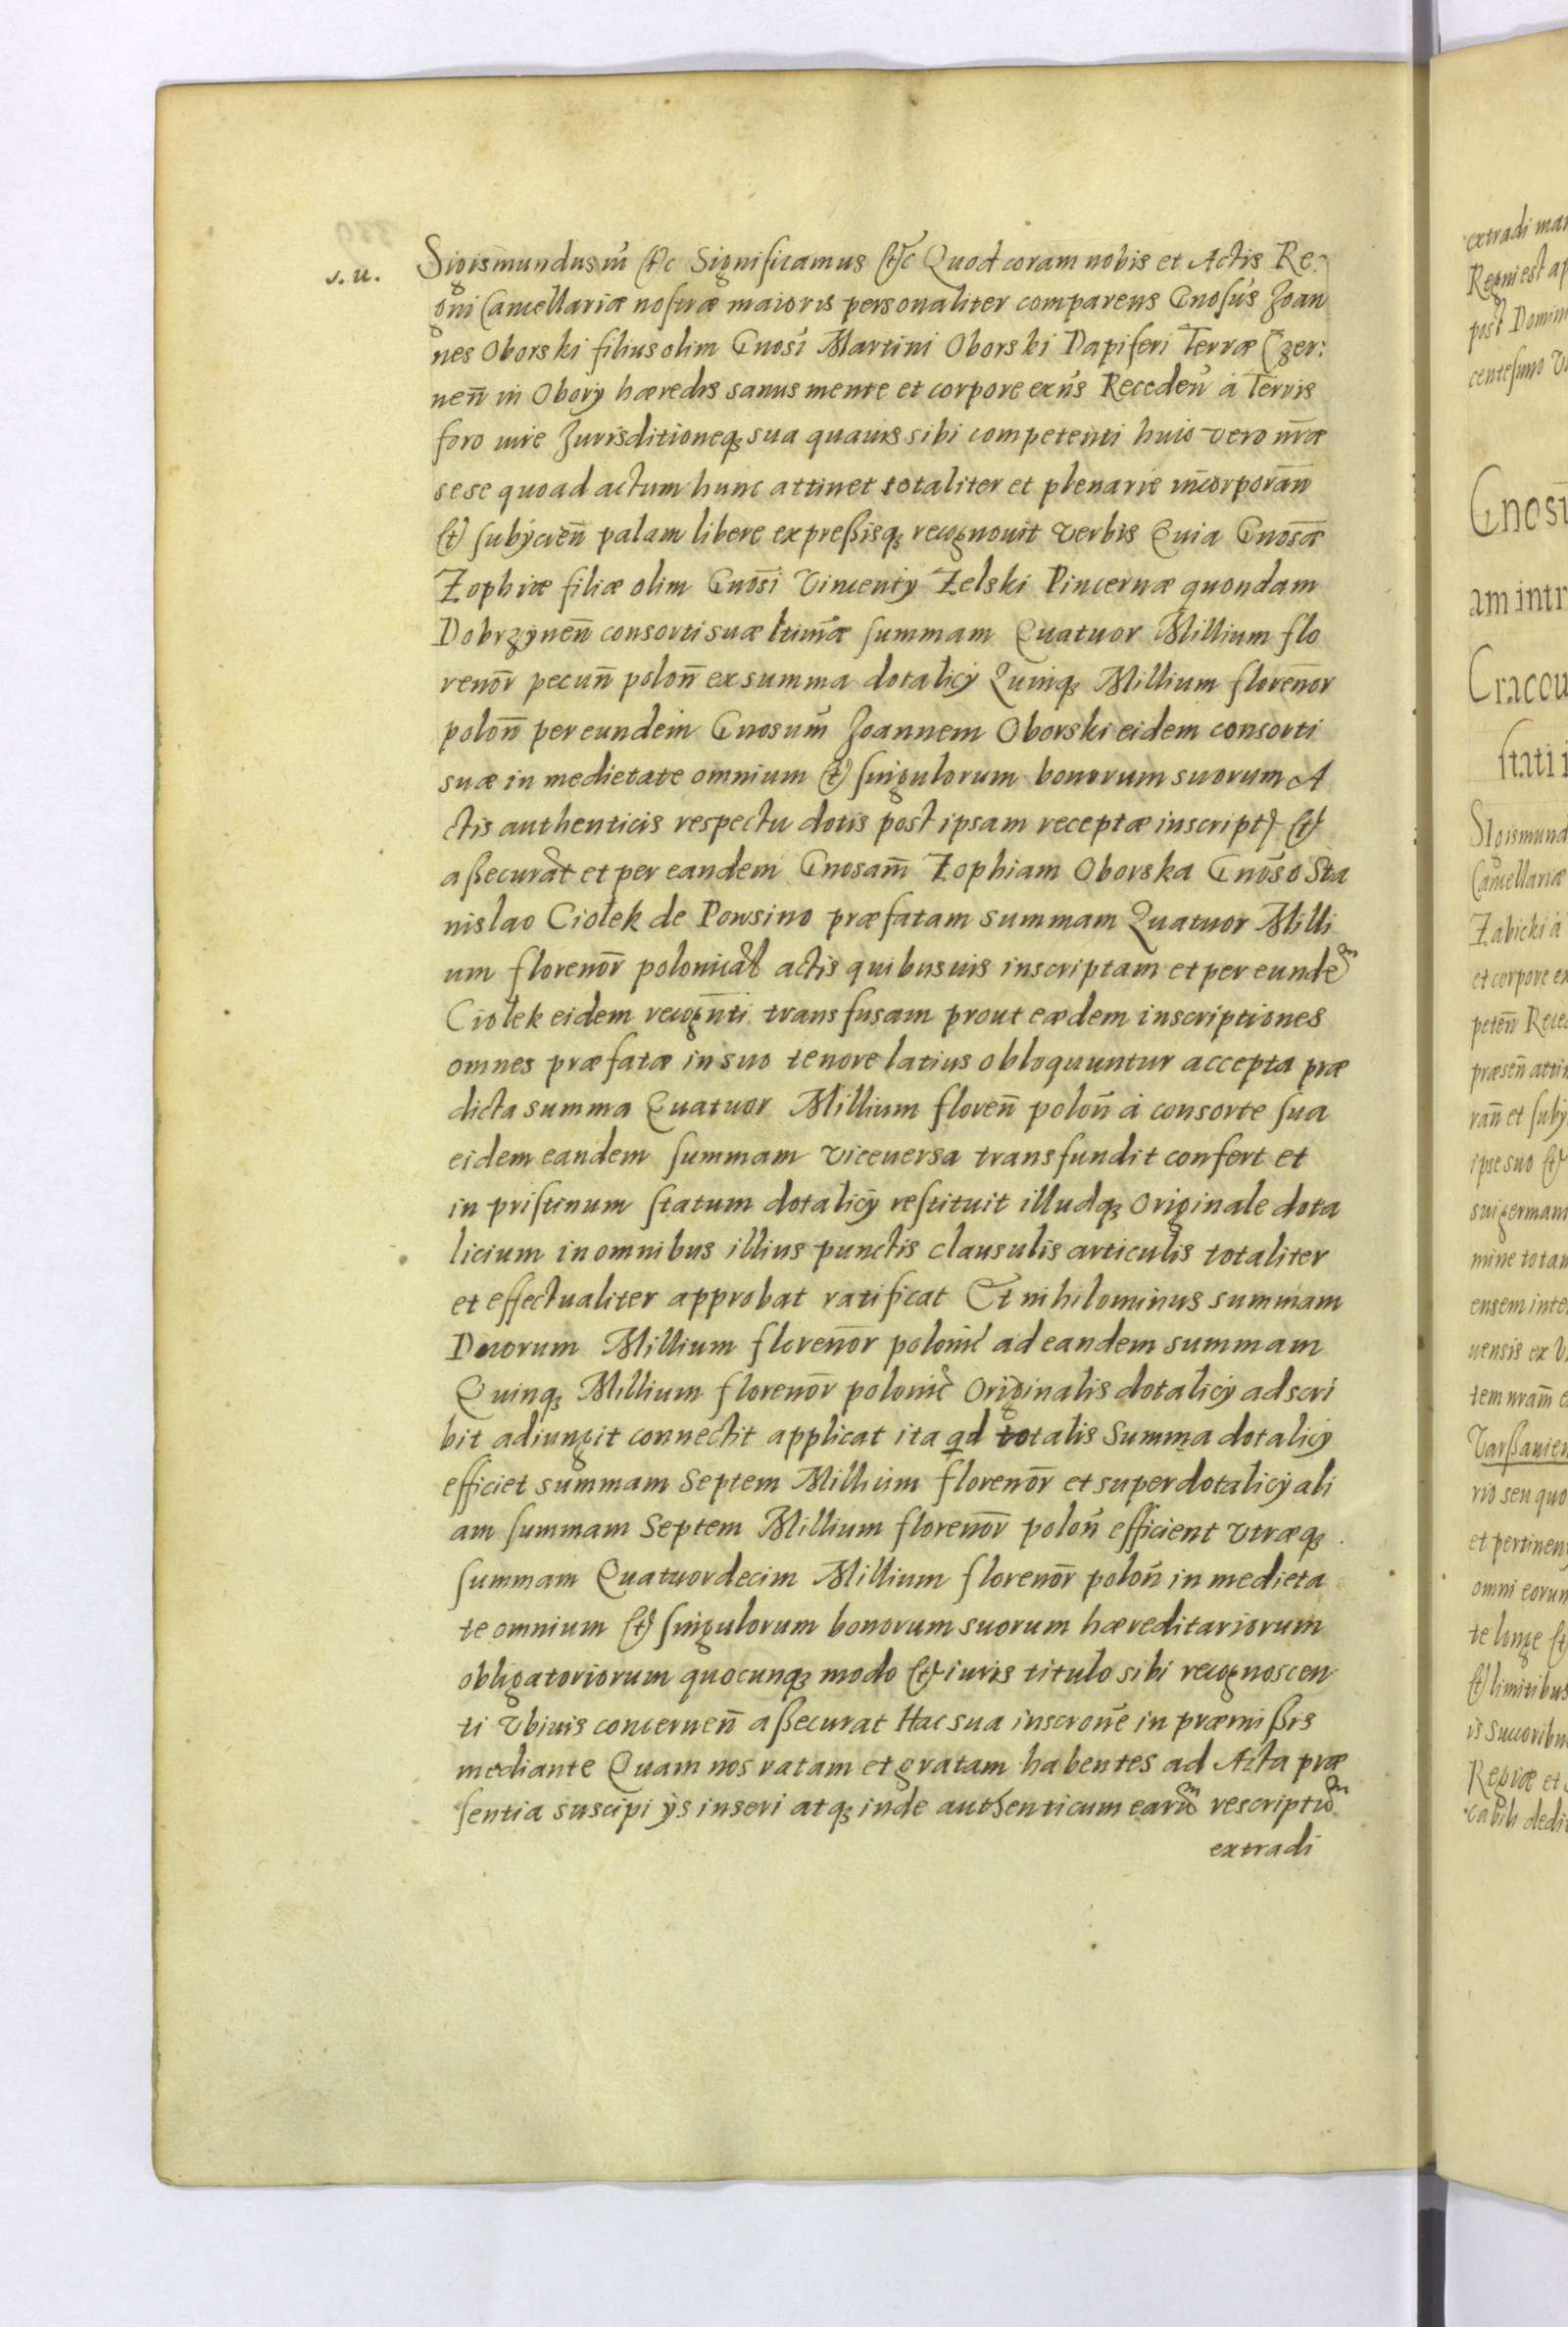 s. u.
Sigismundus iii etc Significamus etc Quod coram nobis et Actis Re-
gni Cancellariæ nostræ maioris personaliter comparens Gnosūs Joan
nes Oborski filius olim Gnosi Martini Oborski Dapiferi Terræ Czer:
neñ in Obory hæredis sanus mente et corpore exn̄s Recedeñ á Terris
foro iure Jurisditioneq3 sua quavis sibi competenti huic vero nr̄æ
sese quoad actum hunc attinet totaliter et plenarie incorporañ
et subijcieñ palam libere expreßisq3 recognouit verbis Quia Gnosæ
Zophiæ filiæ olim Gnosi Vincentij Zelski Pincernæ quondam
Dobrzyneñ consorti suæ ltimæ summam Quatuor Millium flo
renor̄ pecuñ poloñ ex summa dotalicij Quinq3 Millium florenor̄
poloñ per eundem Gnosum̄ Joannem Oborski eidem consorti
suæ in medietate omnium et singulorum bonorum suorum A
ctis authenticis respectu dotis post ipsam receptæ inscript et
aßecurat et per eandem Gnosam̄ Zophiam Oborska Gnoso Sta
nislao Ciołek de Powsino præfatam summam Quatuor Milli
um florenor̄ polonical actis quibusuis inscriptam et per eundem
Ciolek eidem recogn̄ti transfusam prout eædem inscriptiones
omnes præfatæ in suo tenore latius obloquuntur accepta præ
dicta summa Quatuor Millium floreñ poloñ á consorte sua
eidem eandem summam viceuersa transfundit confert et
in pristinum statum dotalicij restituit illudq3 Originale dota
licium in omnibus illius punctis clausulis articulis totaliter
et effectualiter approbat ratificat Et nihilominus summam
Duorum Millium florenor̄ polonic ad eandem summam
Quinq3 Millium florenor̄ polonic Originalis dotalicij adscri
bit adiungit connectit applicat ita qd totalis Summa dotalicij
efficiet summam Septem Millium florenor̄ et superdotalicij ali
am summam Septem Millium florenor̄ poloñ efficient vtræq3
summam Quatuordecim Millium florenor̄ poloñ in medieta
te omnium et singulorum bonorum suorum hæreditariorum
obligatoriorum quocunq3 modo et iuris titulo sibi recognoscen
ti Vbiuis concerneñ aßecurat Hac sua inscrone in præmißis
mediante Quam nos ratam et gratam habentes ad Acta præ
sentia suscipi ijs inseri atq3 inde authenticum earum rescriptum
extradi
extradi man
Regni est ap
post Domin
centesimo
Gnosi
am intr
Cracou
stati i
Sigismund
Cancellariæ
Zabicki á
et corpore ex
peteñ Rece
præseñ atti
rañ et subij
ipse suo et
sui german
mine totam
ensem inte
uensis ex V
tem nram̄
Varßauien
rio seu quo
et pertinen
omni eorum
te longe et
et limitibus
is Succoribu
Regiæ et
cabili dedi